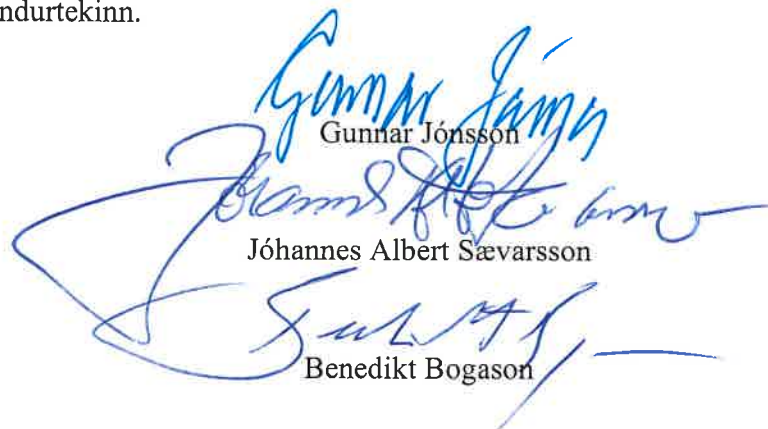 ndurtekinn.
Gunnar Jónsson
Gunnar Jónsson
Jóhannes Albert Sævarsson
Benedikt Bogason